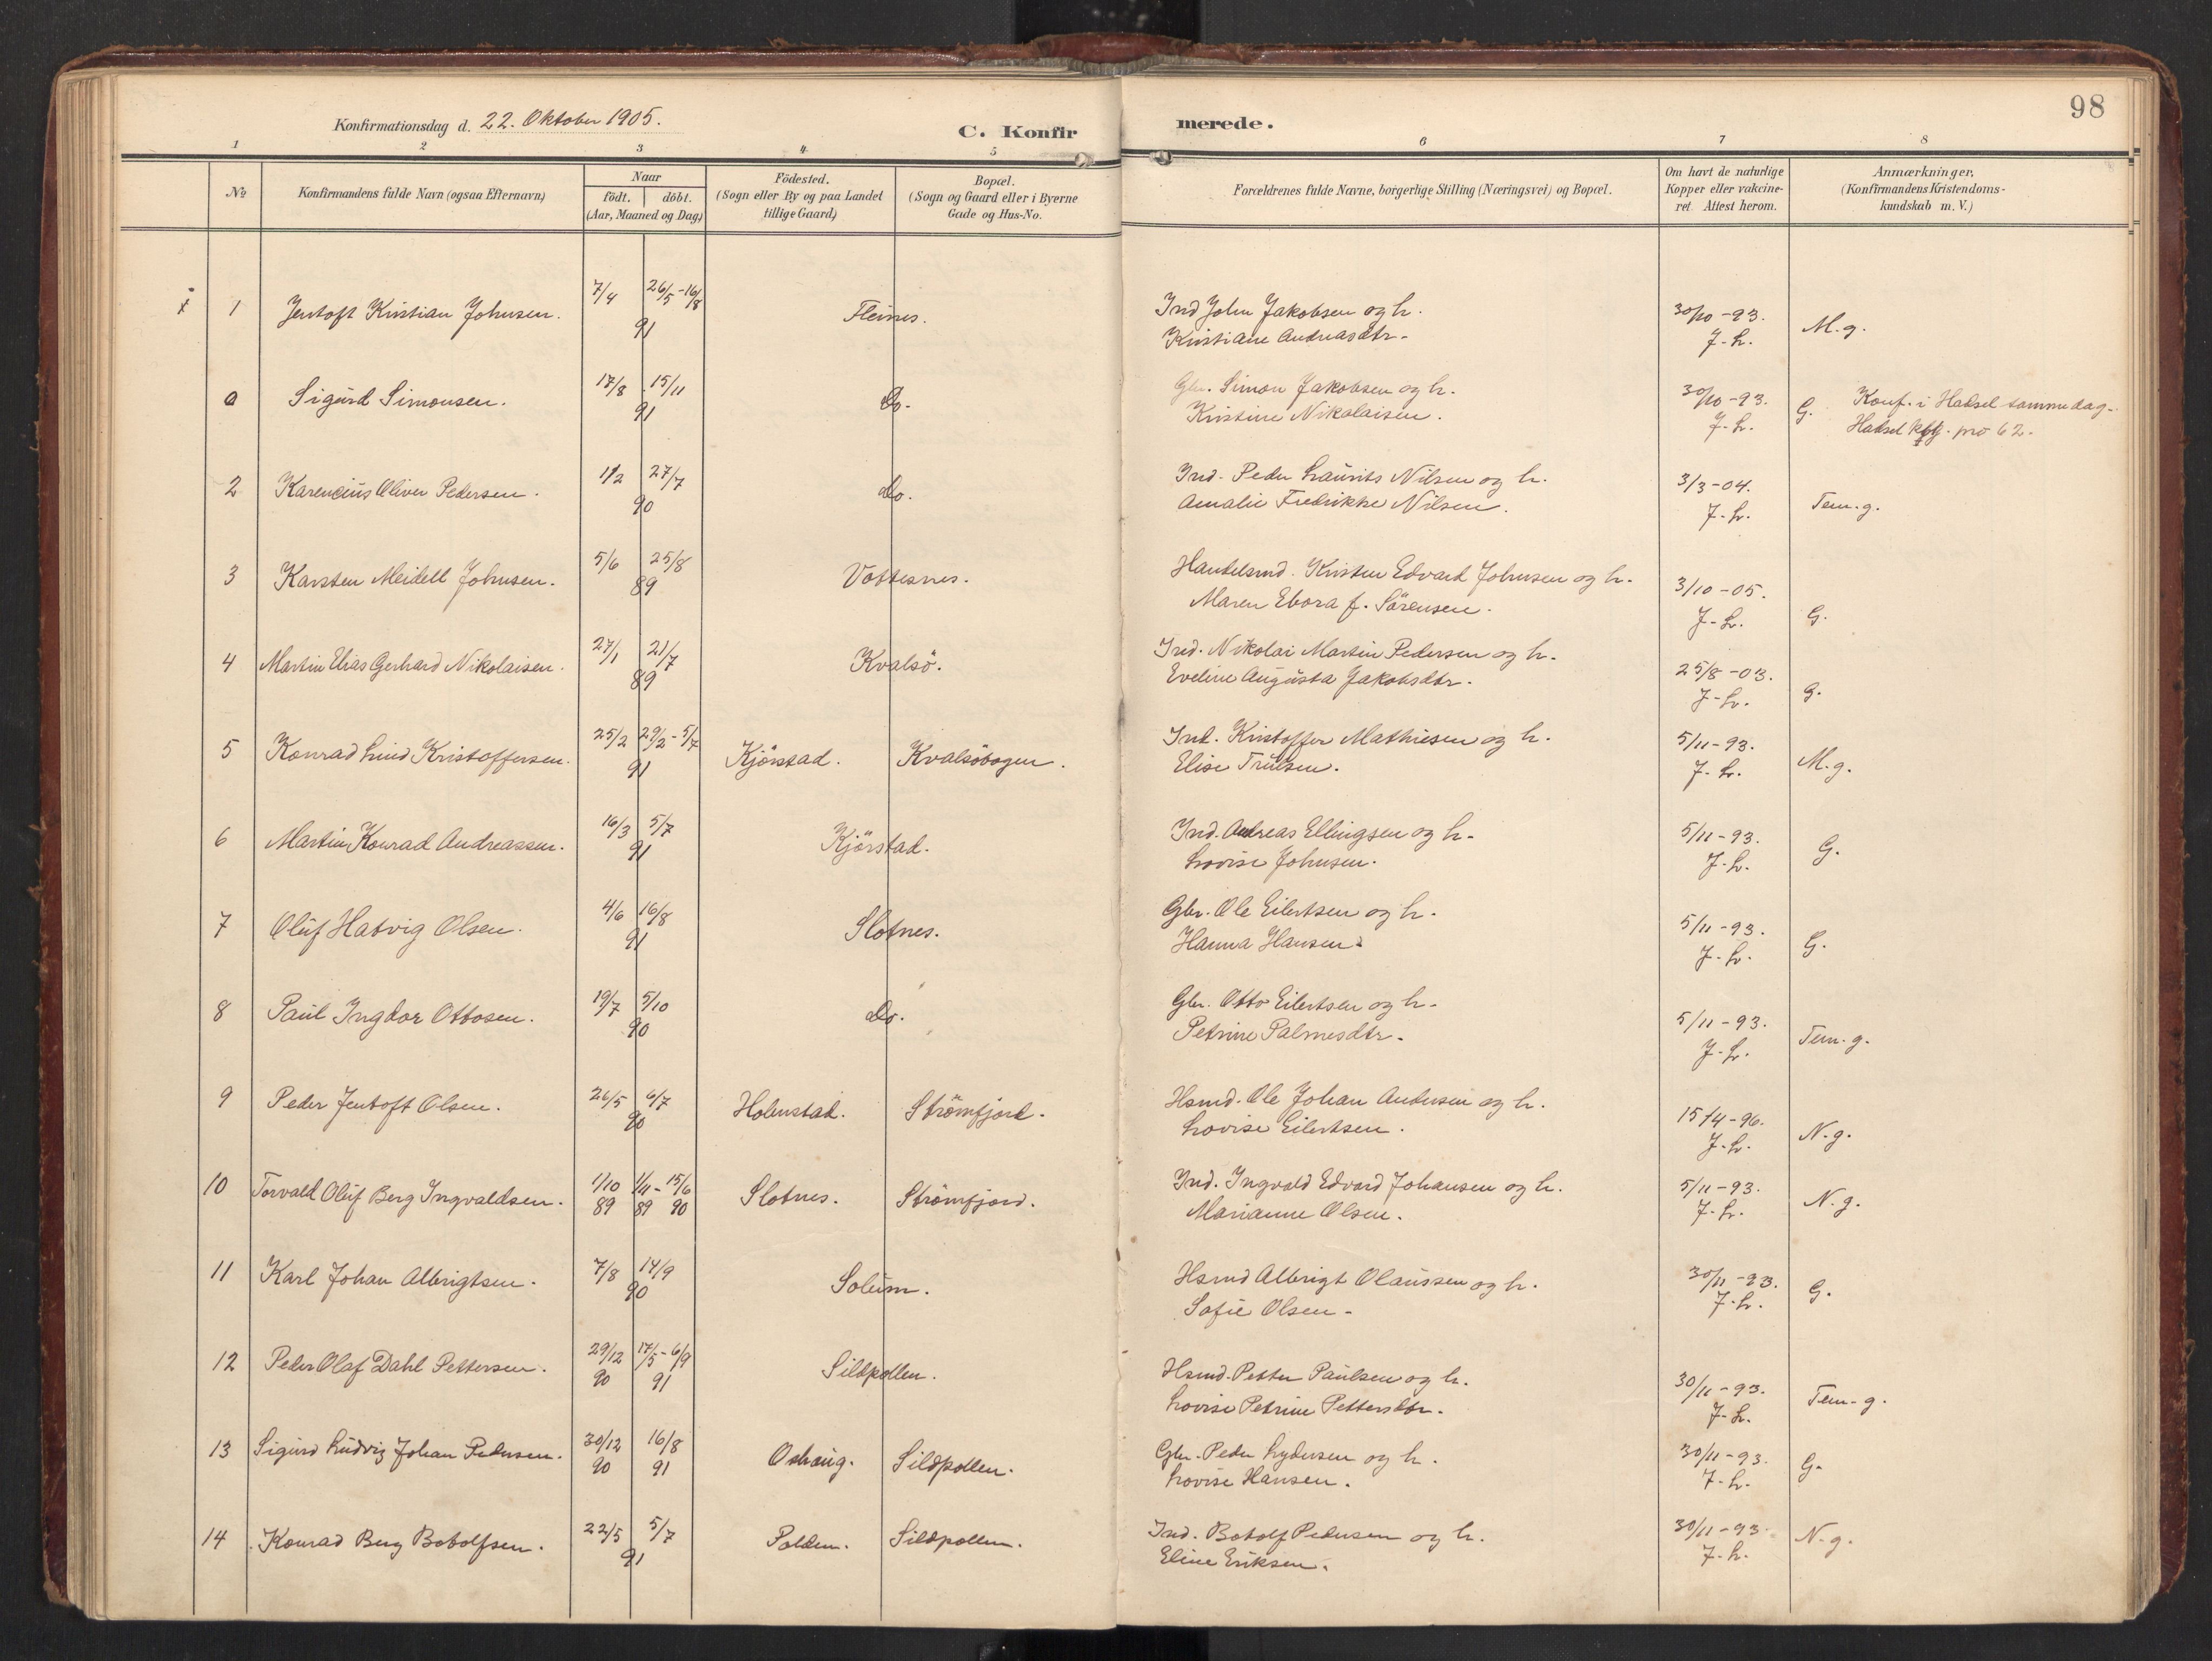 98
Konfirmationsdag d. 22. Oktober 1905.
C. Konfirmerede.
1 2 3 4 5 6 7 8
No
Konfirmandens fulde Navn (ogsaa Efternavn)
Naar
födt. döbt.
(Aar, Maaned og Dag)
Födested.
(Sogn eller By og paa Landet
tillige Gaard)
Bopæl.
(Sogn og Gaard eller i Byerne
Gade og Hus-No.
Forældrenes fulde Navne, borgerlige Stilling (Næringsvei) og Bopæl.
Om havt de naturlige
Kopper eller vakcine-
ret. Attest herom.
Anmærkninger,
(Konfirmandens Kristendoms-
kundskab m. V.)
1 Jentoft Kristian Johnsen. 7/4 26/5-16/8 91 Fleines. Ind John Jakobsen og h. 30/10-93.
Kristiane Andreasdtr. J-L. M.g.
0 Sigurd Simonsen. 17/8 15/11 91 Do. Gbr. Simon Jakobsen og h. 30/10-93. G. Konf. i Hadsel samme dag-
Kristine Nikolaisen. J-L. Hadsel kbg. pro 62.
2 Karencius Oliver Pedersen. 1/2 27/7 90 do. Ind. Peder Laurits Nilsen og h. 3/3-04.
Amalie Fredrikke Nilsen. J-L. Tem.g.
3 Karsten Meidell Johnsen. 5/6 25/8 89 Vottesnes. Handelsmd. Kristen Edvard Johnsen og h. 3/10-05.
Maren Ebora f. Sörensen. J-L. G.
4 Martin Elias Gerhard Nikolaisen. 27/1 21/7 89 Kvalsö. Ind. Nikolai Martin Pedersen og h. 25/8-03.
Eveline Augusta Jakobsdtr. J-L. G.
5 Konrad Lind Kristoffersen. 25/2 29/2-5/7 91 Kjörstad. Kvalsöbogen. Ind. Kristoffer Mathiesen og h. 5/11-93.
Elise Trulsen. J-L. M.g.
6 Martin Konrad Andreassen. 16/3 5/7 91 Kjörstad. Ind. Andreas Ellingsen og h. 5/11-93.
Lovise Johnsen. J-L. G.
7 Oluf Hatvig Olsen. 4/6 16/8 91 Slotnes. Gbr. Ole Eilertsen og h. 5/11-93.
Hanna Hansen. J-L. G.
8 Paul Ingdor Ottosen. 19/7 5/10 90 do. Gbr. Otto Eilertsen og h. 5/11-93.
Petrine Palmesdtr. J-L. Tem.g.
9 Peder Jentoft Olsen. 26/5 6/7 90 Holmstad. Strömfjord. Hsmd. Ole Johan Andersen og h. 15/4-96.
Lovise Eilertsen. J-L. N.g.
10 Torvald Oluf Berg Ingvaldsen. 1/10 89 1/11 89 - 15/6 90 Slotnes. Strömfjord. Ind. Ingvald Edvard Johansen og h. 5/11-93.
Marianne Olsen. J-L. N.g.
11 Karl Johan Albrigtsen. 7/8 14/9 90 Soleim. Hsmd Albrigt Olaussen og h. 30/11-93.
Sofie Olsen. J-L. G.
12 Peder Olaf Dahl Pettersen. 29/12 90 17/5-6/9 91 Sildpollen. Hsmd. Petter Paulsen og h. 30/11-93.
Lovise Petrine Pettersdtr. J-L. Tem.g.
13 Sigurd Ludvig Johan Pedersen. 30/12 90 16/8 91 Oshaug. Sildpollen. Gbr. Peder Lydersen og h. 30/11-93.
Lovise Hansen. J-L. G.
14 Konrad Berg Botolfsen. 22/5 5/7 91 Polden. Sildpollen. Ind. Botolf Pedersen og h. 30/11-93.
Eline Eriksen. J-L. N.g.